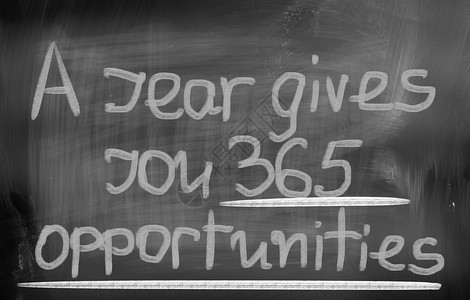 A year gives
you 365
opportunities